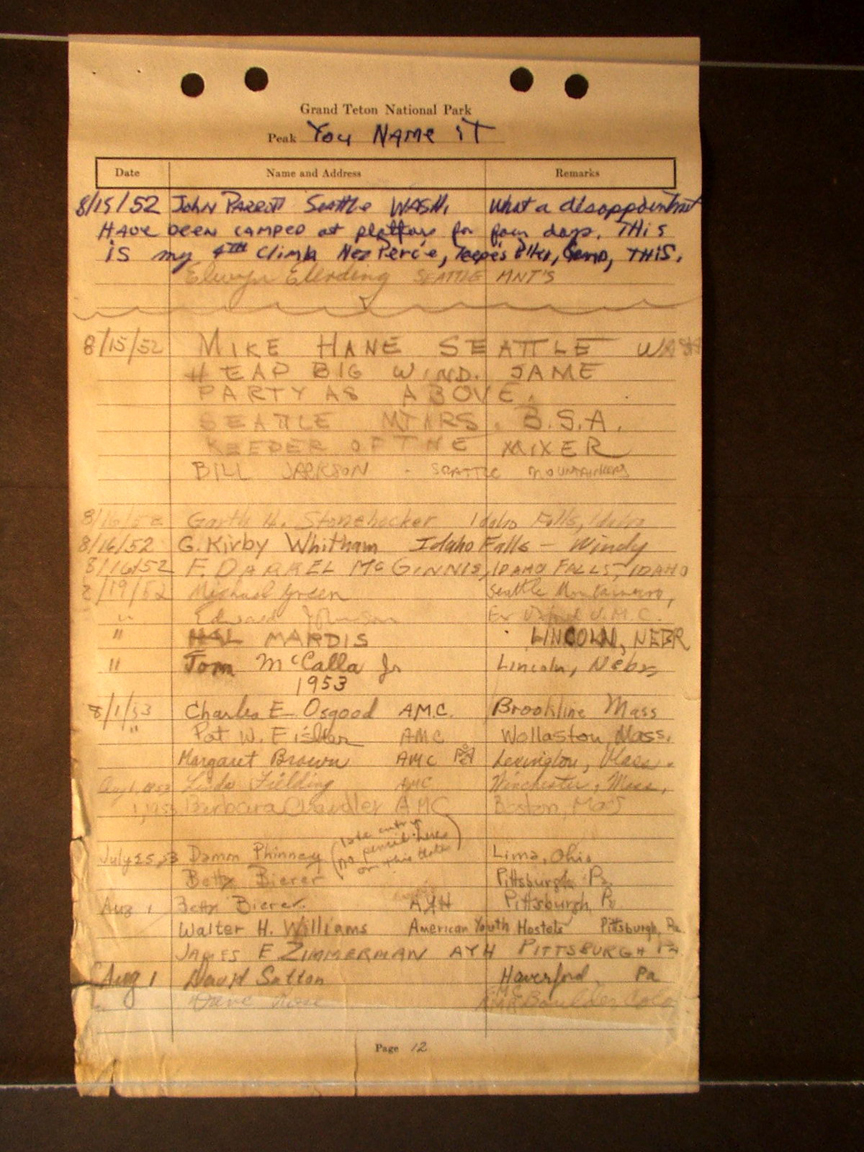 Grand Teton National Park
Peak You NAME iT
Date Name and Address Remarks
8/15/52 JOHN PARROTT SEATTLE WASH. What a disappointment
HAVE been camped at platform for four days. THiS
iS my 4TH Climb Nez Perc'e, Teepe's Pillar, THiS.
Elwyn Elerding SEATTLE MNT'S
8/15/52 MIKE HANE SEATTLE WASH
HEAP BIG WIND. SAME
PARTY AS ABOVE.
SEATTLE MTNRS. B.S.A.
KEEPER OF THE MIXER
BILL JACKSON - SEATTLE MOUNTAINEERS
8/16/52 Garth H. Stonehocker Idaho Falls, Idaho
8/16/52 G. Kirby Whitham Idaho Falls - Windy
8/16/52 F. DARREL MCGINNIS, IDAHO FALLS, IDAHO
8/19/52 Michael Green Seattle Mountaineers,
" Edward Johnson Ex U.M.C.
" HAL MARDIS LINCOLN, NEBR
" Tom McCalla Jr Lincoln, Nebr
1953
8/1/53 Charles E Osgood A.M.C. Brookline Mass
" Pat W. Eisler AMC Wollaston Mass.
Margaret Brown AMC Lexington, Mass.
Aug 1, 1953 Linda Fielding AMC Winchester, Mass.
1, 1953 Barbara Chandler AMC Boston, Mass
July 25, 53 Damon Phinney (late entry no pencil here on this date) Lima, Ohio
Betty Bierer Pittsburgh Pa
Aug 1 Betty Bierer AYH Pittsburgh Pa
Walter H. Williams American Youth Hostels Pittsburgh, Pa
JAMES F ZIMMERMAN AYH PITTSBURGH Pa
Aug 1 David Sutton Haverford Pa
" Dave Boulder Colo
Page 12